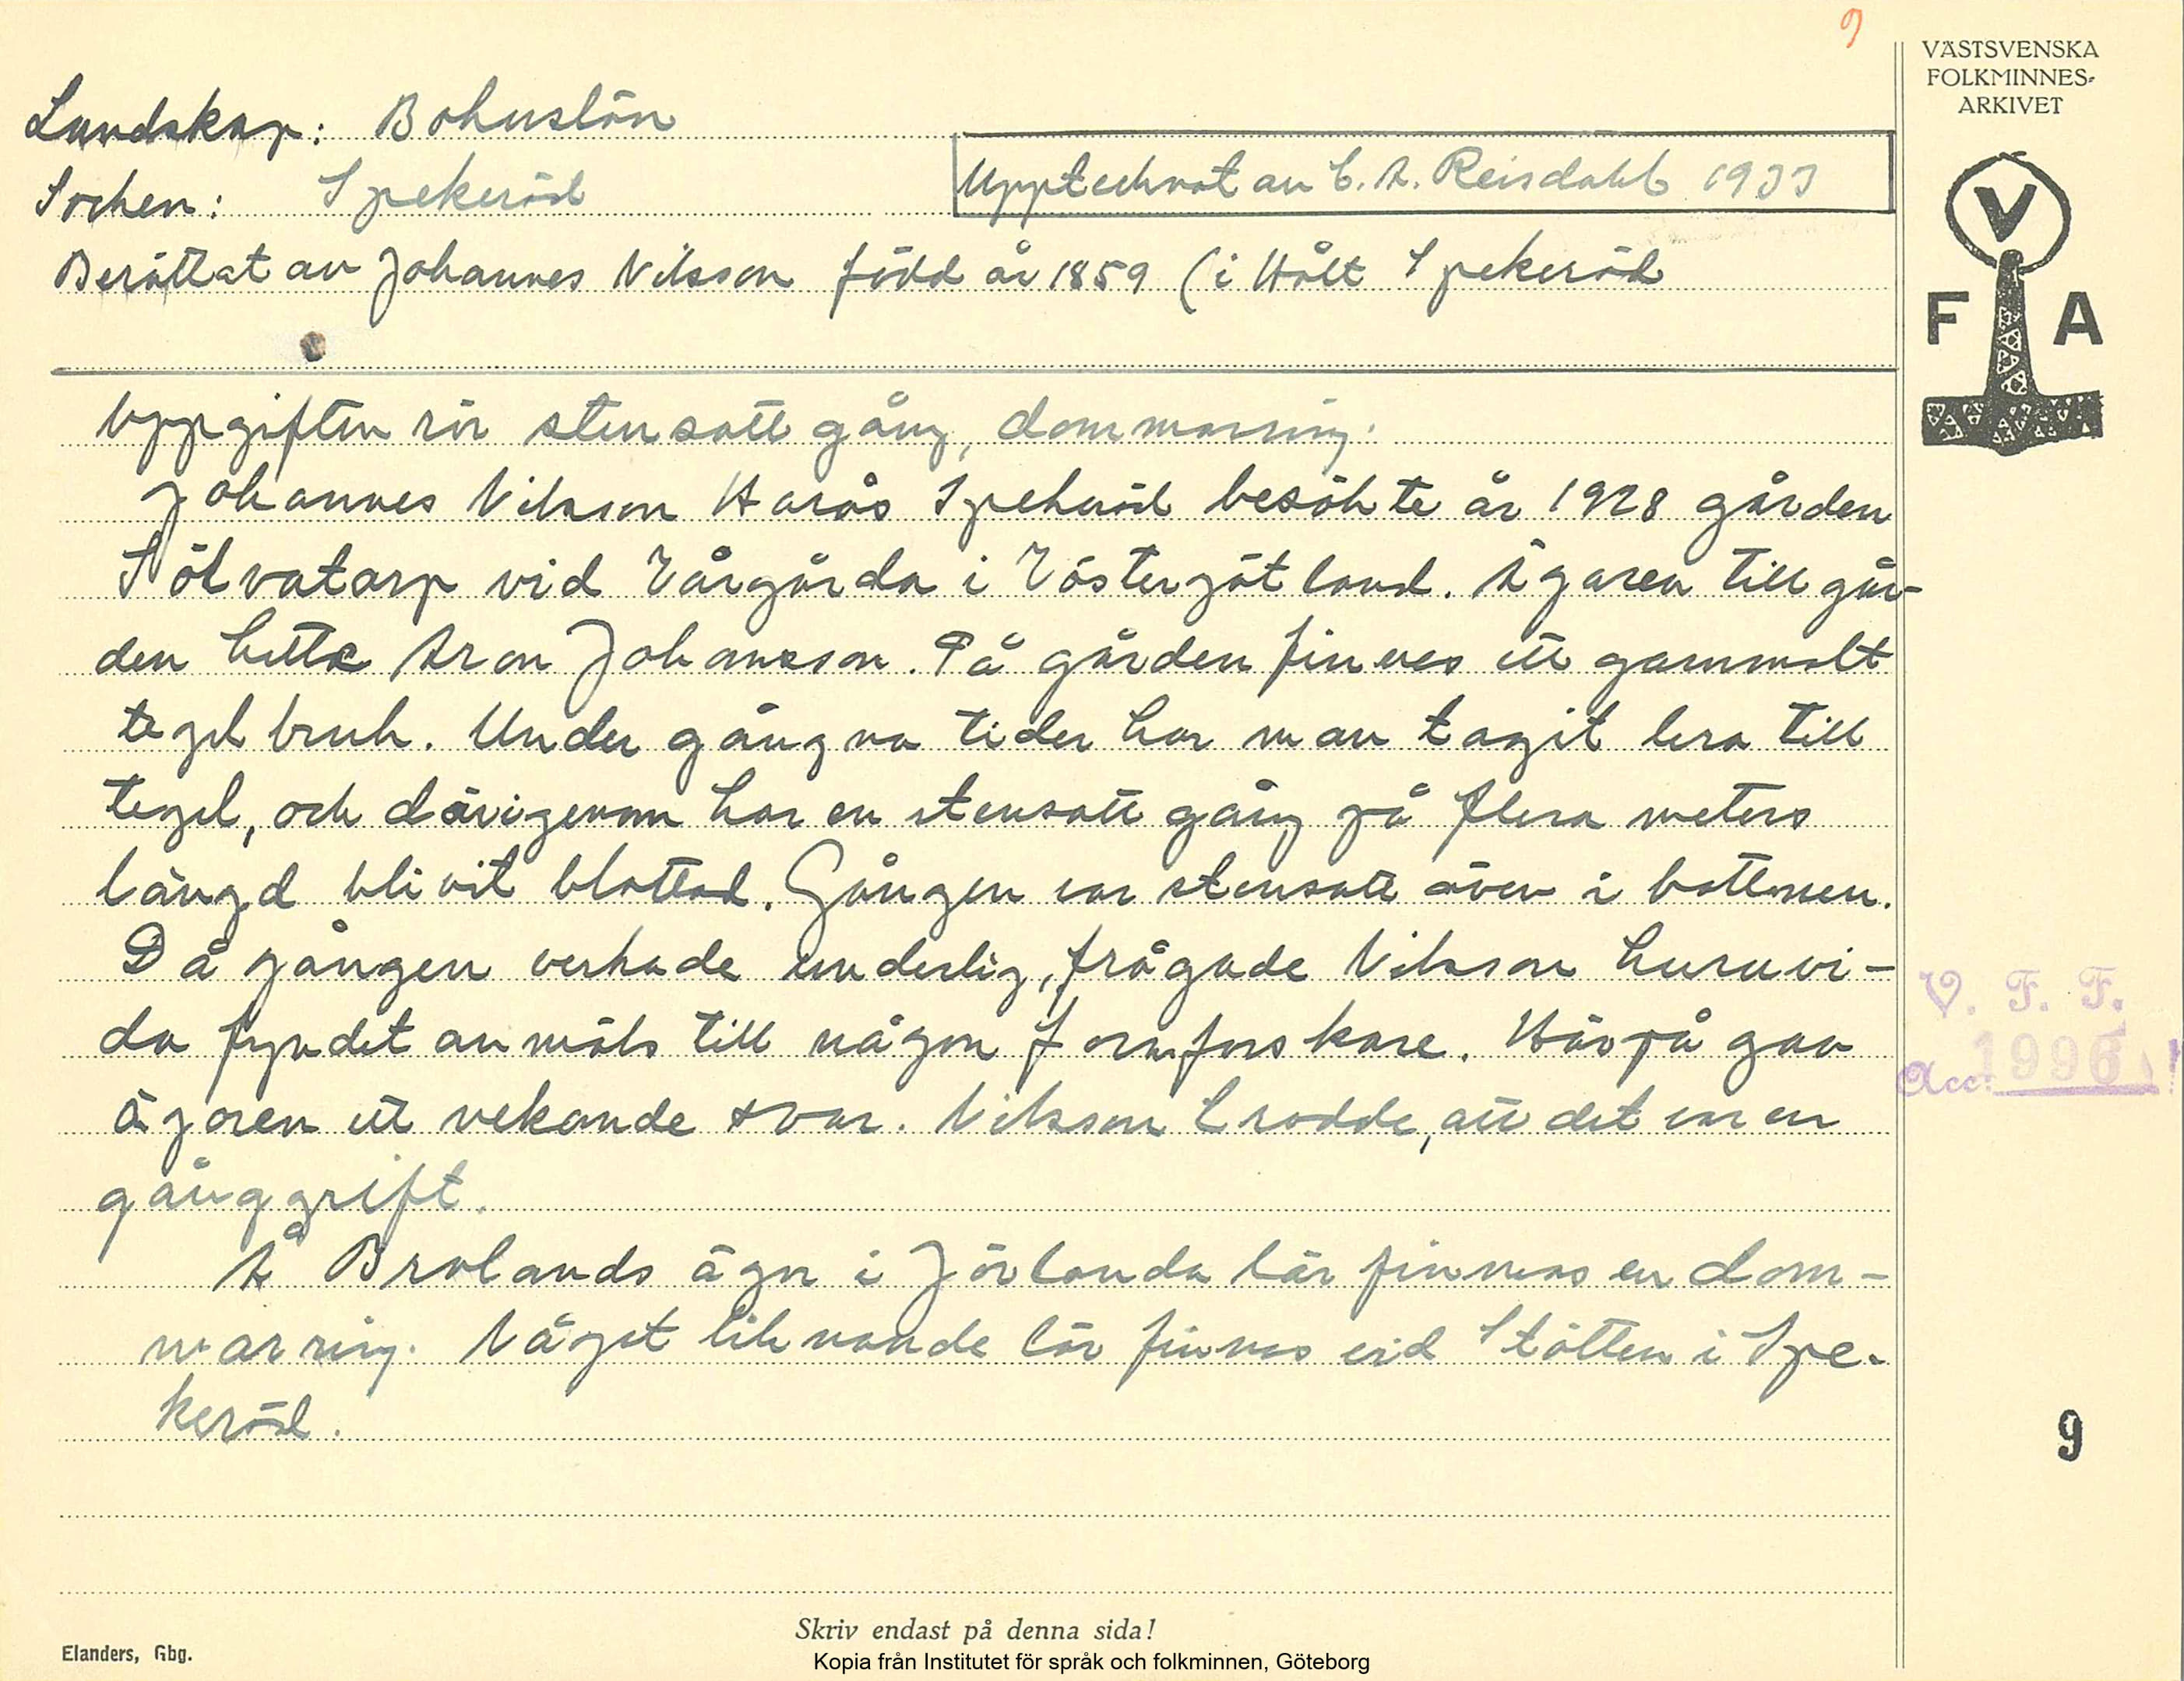 9
VÄSTSVENSKA
FOLKMINNES-
ARKIVET
Landskap: Bohuslän
Socken: Spekeröd
Upptecknat av C. A. Reisdahl 1933
Berättat av Johannes Nilsson född år 1859 (i Hålt Spekeröd
V
F A
Uppgiften rör stensatt gång, dommarring.
Johannes Nilsson Harås Spekeröd besökte år 1928 gården
Sölvatarp vid Vårgårda i Västergötland. Ägaren till går-
den hette Aron Johansson. På gården finnes ett gammalt
tegelbruk. Under gångna tider har man tagit lera till
tegel, och därigenom har en stensatt gång på flera meters
längd blivit blottad. Gången var stensatt även i bottnen.
Då gången verkade underlig, frågade Nilsson huruvi-
da fyndet anmäls till någon fornforskare. Härpå gav
ägaren ett vekande svar. Nilsson trodde, att det var en
gånggrift.
Å Brolands ägor i Jörlanda lär finnas en dom-
marring. Något liknande lär finnas vid Stötten i Spe-
keröd.
V. F. F.
Acc. 1996
9
Skriv endast på denna sida!
Elanders, Gbg.
Kopia från Institutet för språk och folkminnen, Göteborg